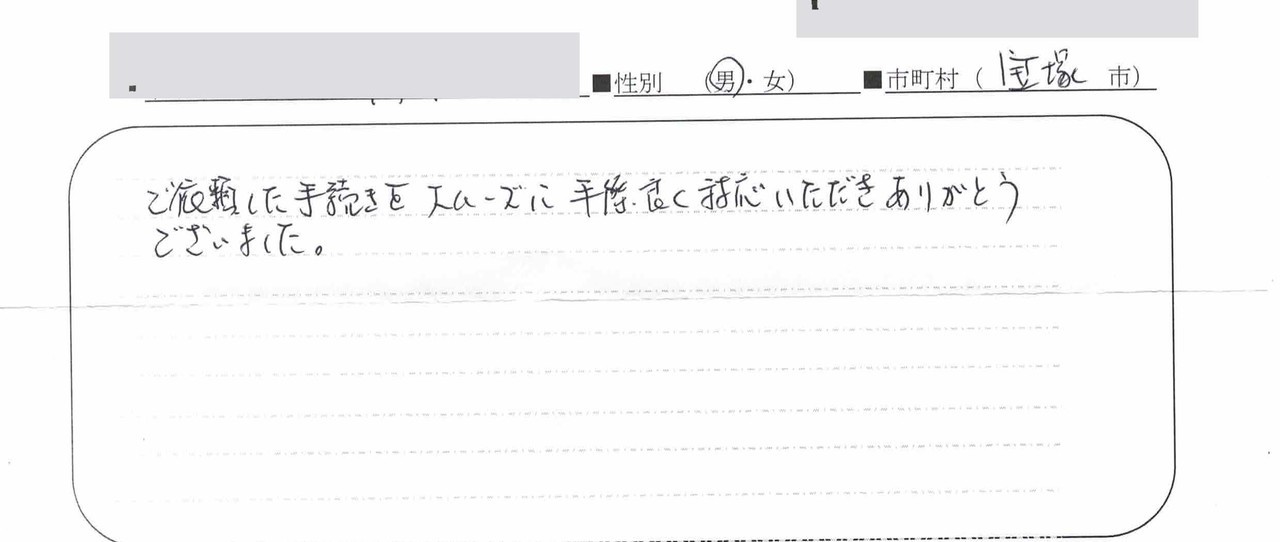 ■性別 (男・女) ■市町村 ( 宝塚 市)
ご依頼した手続きを スムーズに 手際良く 対応いただきありがとう
ございました。